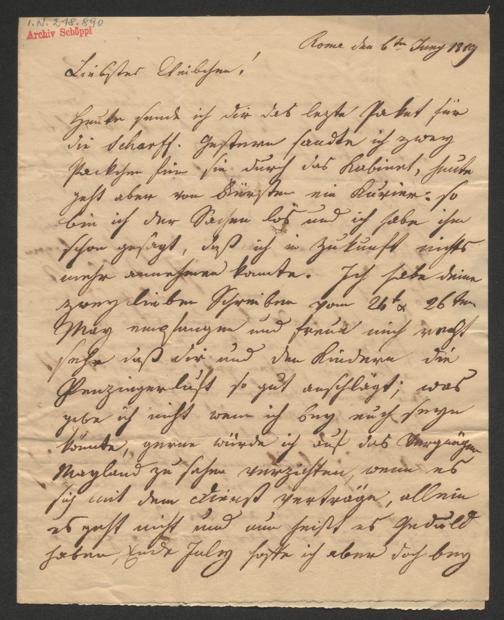 I.N. 218.890
Archiv Schöppl
Rome den 6ten Juny 1819
Liebstes Weibchen!
Heute sende ich dir das lezte Paket für
die Scharff. Gestern sandte ich zwey
Packchen für sie durch das Kabinet, heute
geht aber von Fürsten ein Kurier. so
bin ich der Sachen los und ich habe ihm
schon gesagt, daß ich in Zukunft nichts
mehr annehmen könnte. Ich habe deine
zwey lieben Schreiben vom 24t & 26ten
May empfangen und freue mich recht
sehr daß dir und den Kindern die
Penzingerluft so gut anschlägt; was
gebe ich nicht wenn ich bey euch seyn
könnte, gerne würde ich auf das Vergnügen
Mayland zu sehen verzichten, wenn es
sich mit dem Dienst vertrüge, allein
es geht nicht und nun heißt es Geduld
haben, Ende July hoffe ich aber doch bey